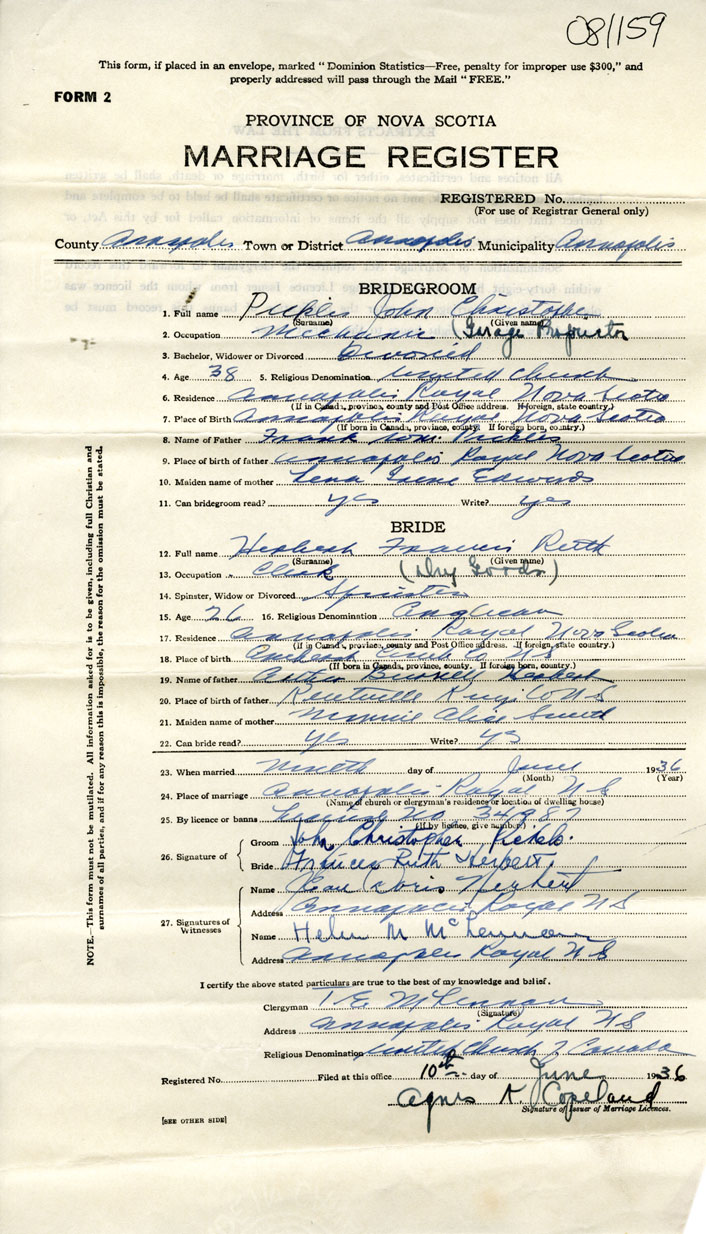 081159
This form, if placed in an envelope, marked "Dominion Statistics—Free, penalty for improper use $300," and
properly addressed will pass through the Mail "FREE."
FORM 2
PROVINCE OF NOVA SCOTIA
MARRIAGE REGISTER
REGISTERED No.
(For use of Registrar General only)
County Annapolis Town or District Annapolis Municipality Annapolis
BRIDEGROOM
1. Full name Pickles John Christopher
(Surname) (Given name)
2. Occupation Mechanic (Garage Proprietor
3. Bachelor, Widower or Divorced Divorced
4. Age 38 5. Religious Denomination United Church
6. Residence Annapolis Royal Nova Scotia
(If in Canada, province, county and Post Office address. If foreign, state country.)
7. Place of Birth Annapolis Royal Nova Scotia
(If born in Canada, province, county. If foreign born, country.)
8. Name of Father Frank Wm. Pickles
9. Place of birth of father Annapolis Royal Nova Scotia
10. Maiden name of mother Lena Irene Edwards
11. Can bridegroom read? yes Write? yes
BRIDE
12. Full name Herbert Francis Ruth
(Surname) (Given name)
13. Occupation Clerk (Dry Goods)
14. Spinster, Widow or Divorced Spinster
15. Age 26 16. Religious Denomination Anglican
17. Residence Annapolis Royal Nova Scotia
(If in Canada, province, county and Post Office address. If foreign, state country.)
18. Place of birth Amherst N S
(If born in Canada, province, county. If foreign born, country.)
19. Name of father Herbert
20. Place of birth of father Kentville Kings Co N S
21. Maiden name of mother Minnie Alice Smith
22. Can bride read? yes Write? yes
23. When married ninth day of June 1936
(Month) (Year)
24. Place of marriage Annapolis Royal N S
(Name of church or clergyman's residence or location of dwelling house)
25. By licence or banns License No. 34987
(If by licence, give number)
26. Signature of
Groom John Christopher Pickels.
Bride Frances Ruth Herbert
27. Signatures of Witnesses
Name Doris Herbert
Address Annapolis Royal N S
Name Helen M McLennan
Address Annapolis Royal N S
I certify the above stated particulars are true to the best of my knowledge and belief.
Clergyman T E McLennan
(Signature)
Address Annapolis Royal N S
Religious Denomination United Church of Canada
Registered No. Filed at this office 10th day of June 1936
Agnes K. Copeland
Signature of Issuer of Marriage Licences.
[SEE OTHER SIDE]
NOTE.—This form must not be mutilated. All information asked for is to be given, including full Christian and
surnames of all parties, and if for any reason this is impossible, the reason for the omission must be stated.